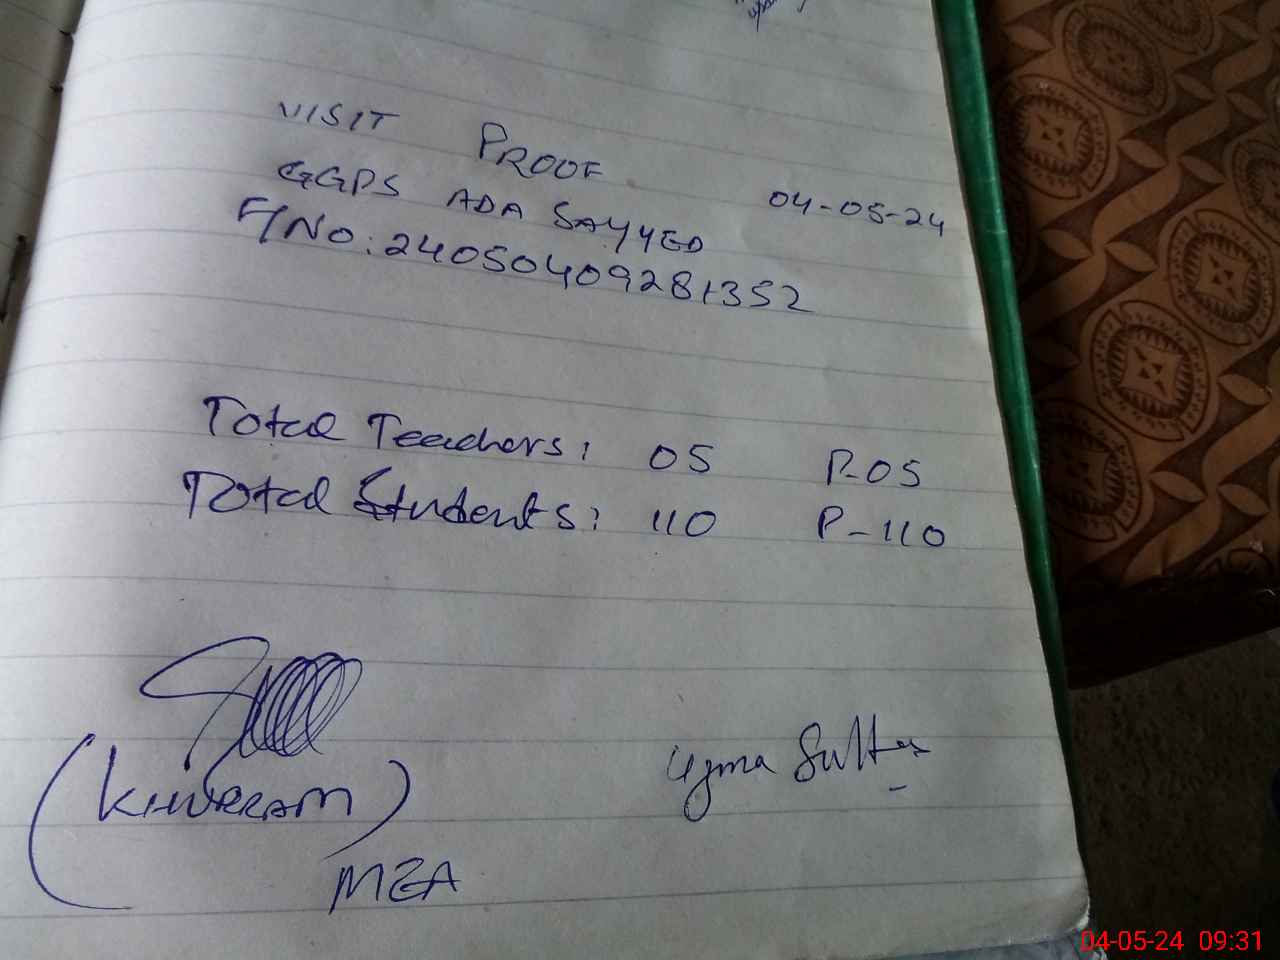 VISIT PROOF
GGPS ADA SAYYED 04-05-24
F/No: 24050409281352
Total Teachers: 05 P-05
Total Students: 110 P-110
(KHURRAM)
MEA
04-05-24 09:31